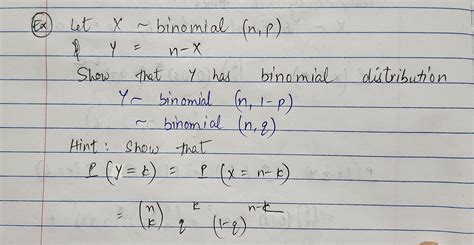 Ex Let X ~ binomial (n,p)
& Y = n-X
Show that Y has binomial distribution
Y ~ binomial (n, 1-p)
~ binomial (n, q)
Hint: Show that
P (Y = k) = P (X = n-k)
= (n k) q^k (1-q)^n-k